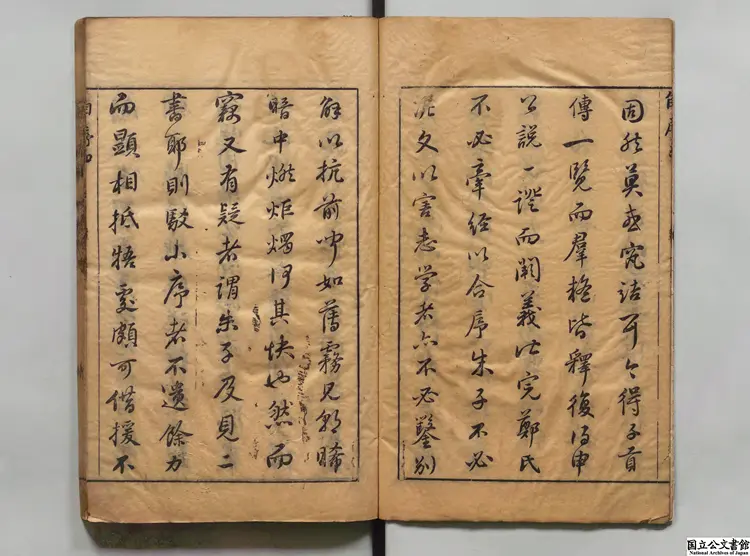 固然莫究詰耳今得子貢
傳一覽而羣皆釋復得申
公說一證而闕義以完鄭氏
不必牽經以合序朱子不必
泥文以害志学者亦不必鑿別
解以抗前吁如舊霧見朝晞
暗中燃炬燭何其快也然而
竊又有疑者謂朱子及見二
書耶則駁小序者不遺餘力
而顯相抵牾處頗可借援不
国立公文書館
National Archives of Japan